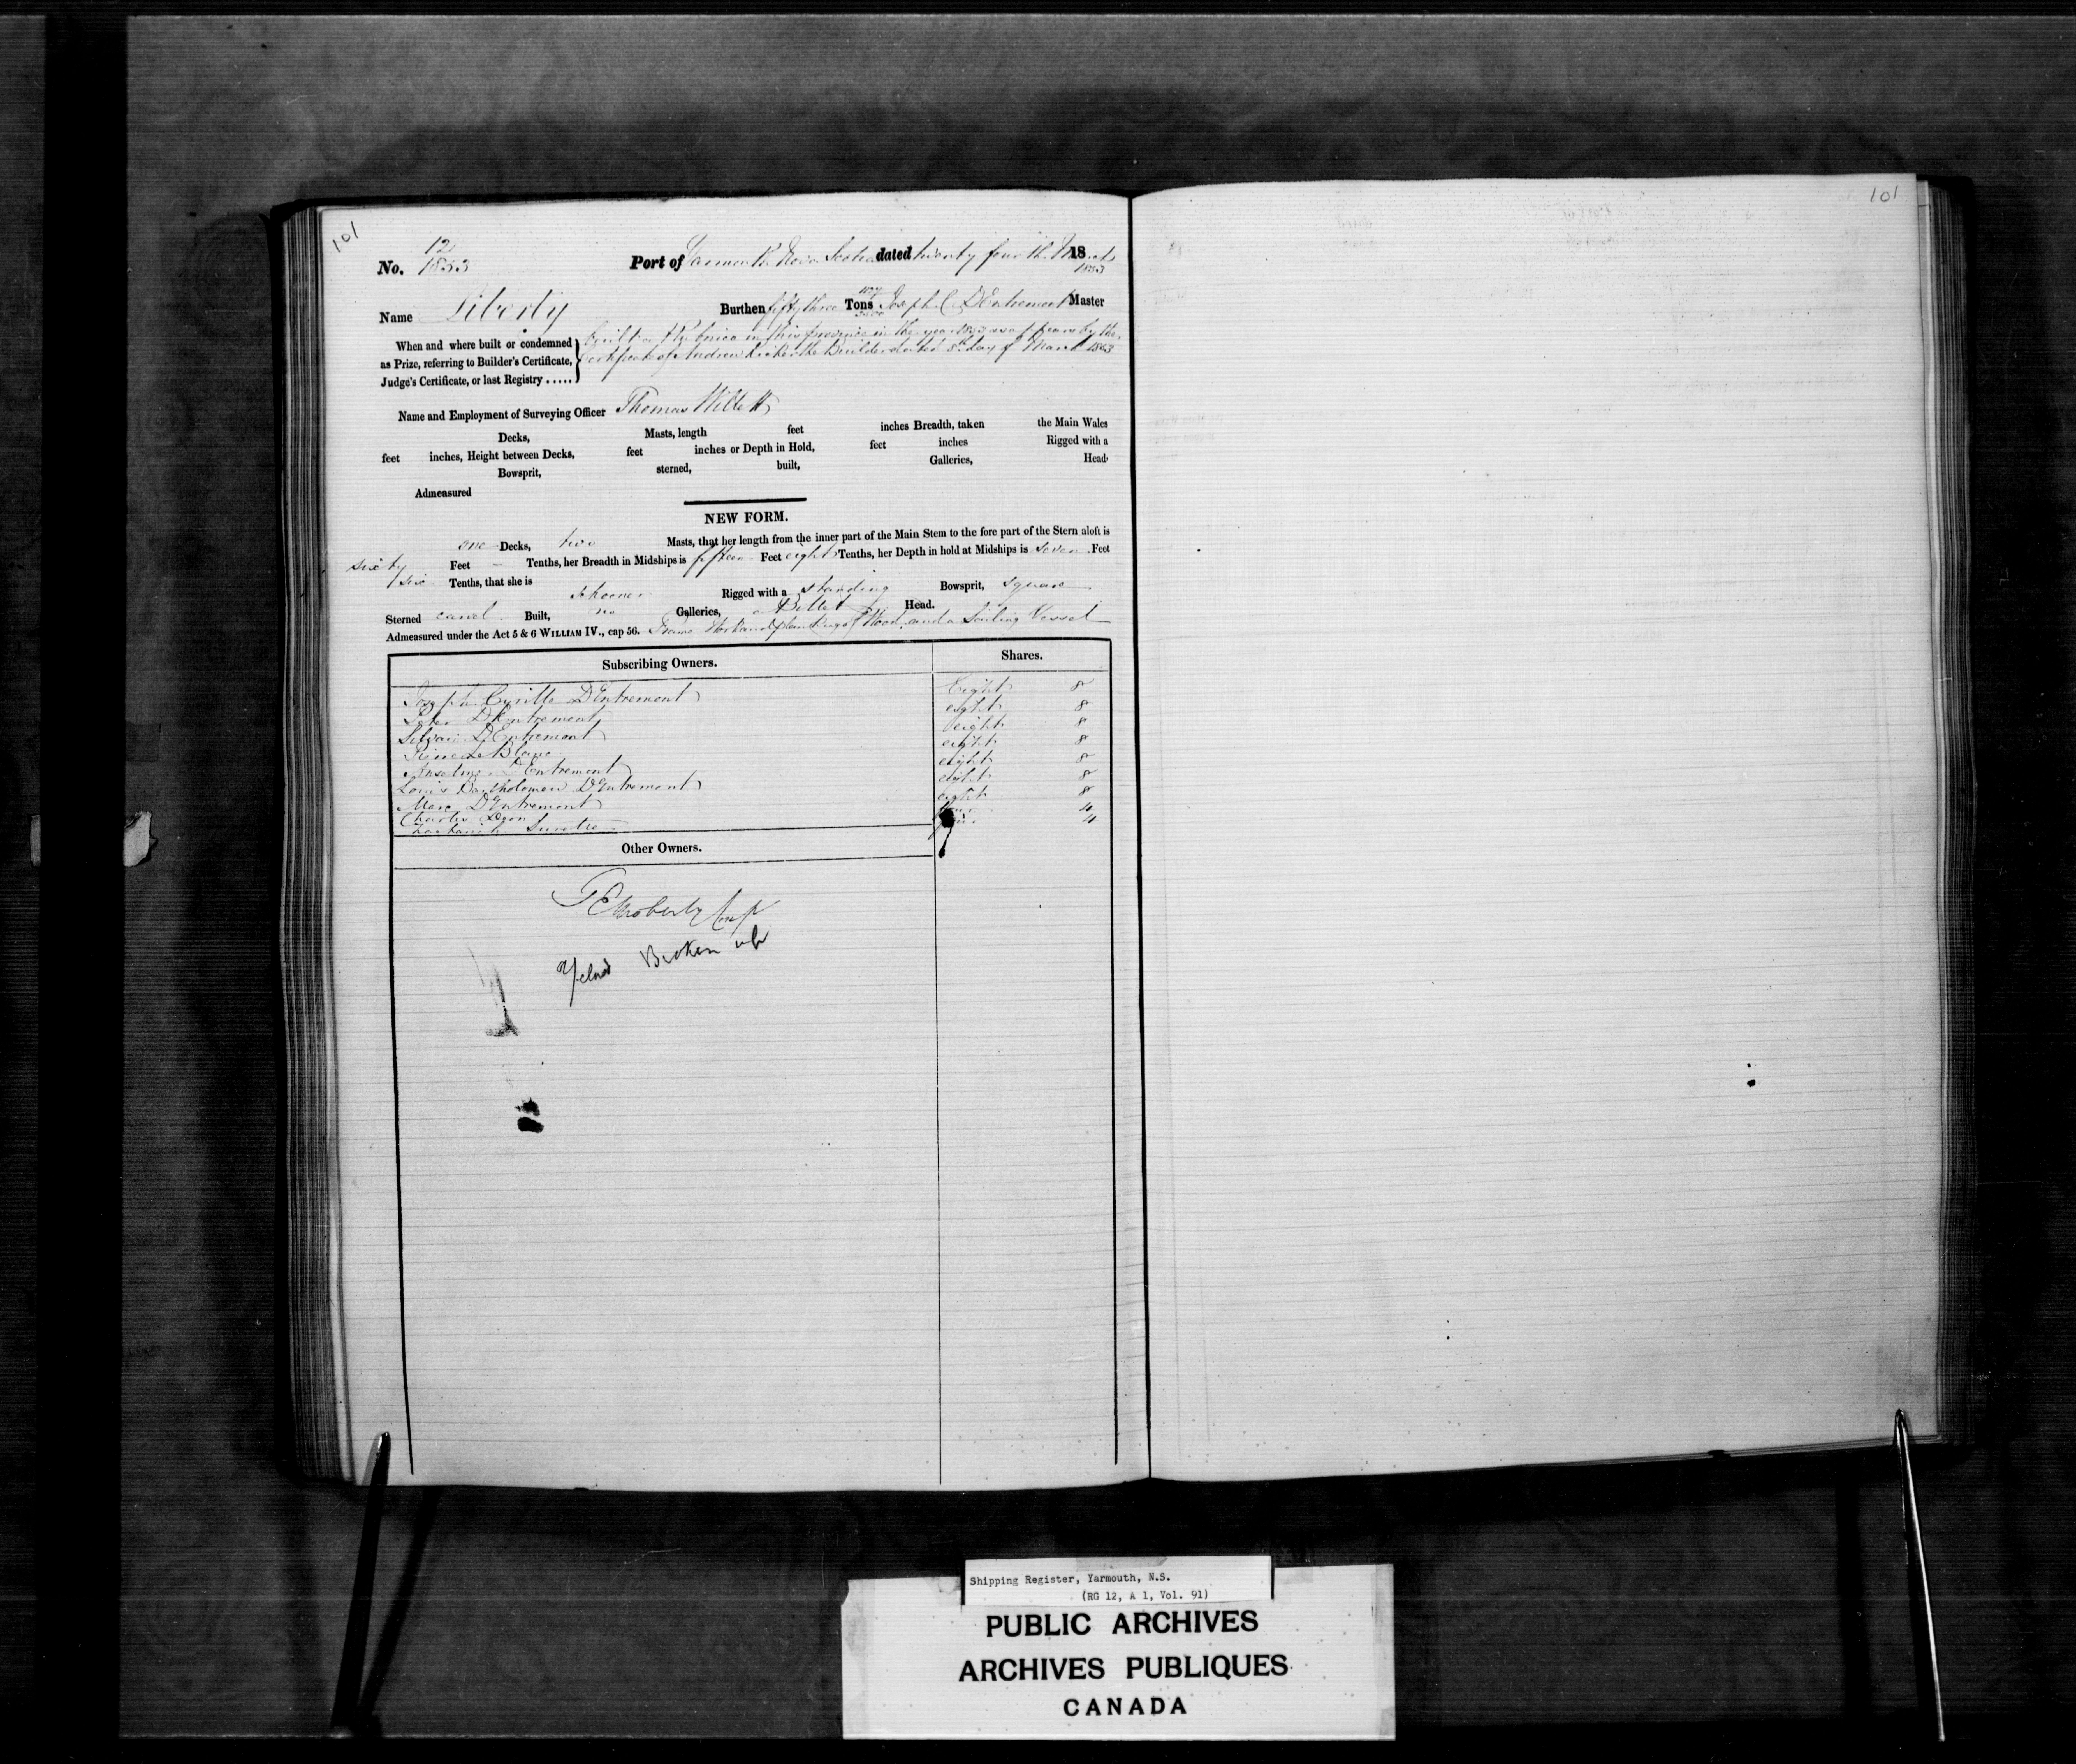 101
101
No. 12/1853 Port of Yarmouth Nova Scotia dated twenty fourth March 18
1853
Name Liberty Burthen fifty three Tons Joseph C. DEntremont Master
When and where built or condemned as Prize, referring to Builder's Certificate, Judge's Certificate, or last Registry .....
Built at Pubnico in this province in the year 1853 as appears by the
Certificate of Andrew the Builder dated 8th day of March 1853
Name and Employment of Surveying Officer Thomas Willett
Decks, Masts, length feet inches Breadth, taken the Main Wales
feet inches, Height between Decks, feet inches or Depth in Hold, feet inches Rigged with a
Bowsprit, sterned, built, Galleries, Head
Admeasured
NEW FORM.
one Decks, two Masts, that her length from the inner part of the Main Stem to the fore part of the Stern aloft is
sixty Feet – Tenths, her Breadth in Midships is fifteen Feet eight Tenths, her Depth in hold at Midships is seven Feet
six Tenths, that she is Schooner Rigged with a standing Bowsprit, square
Sterned carvel Built, no Galleries, a Billet Head.
Admeasured under the Act 5 & 6 WILLIAM IV., cap 56. Frame Work and planking of Wood, and a Sailing Vessel
Subscribing Owners. Shares.
Joseph Cyrille DEntremont Eight 8
Peter DEntremont eight 8
Silvain DEntremont eight 8
Pierre LeBlanc eight 8
Anselme DEntremont eight 8
Louis Bartholomew DEntremont eight 8
Marc DEntremont eight 8
Charles Deon four 4
Surette four 4
Other Owners.
Moberly Comp
Broken up
Shipping Register, Yarmouth, N.S.
(RG 12, A 1, Vol. 91)
PUBLIC ARCHIVES
ARCHIVES PUBLIQUES
CANADA